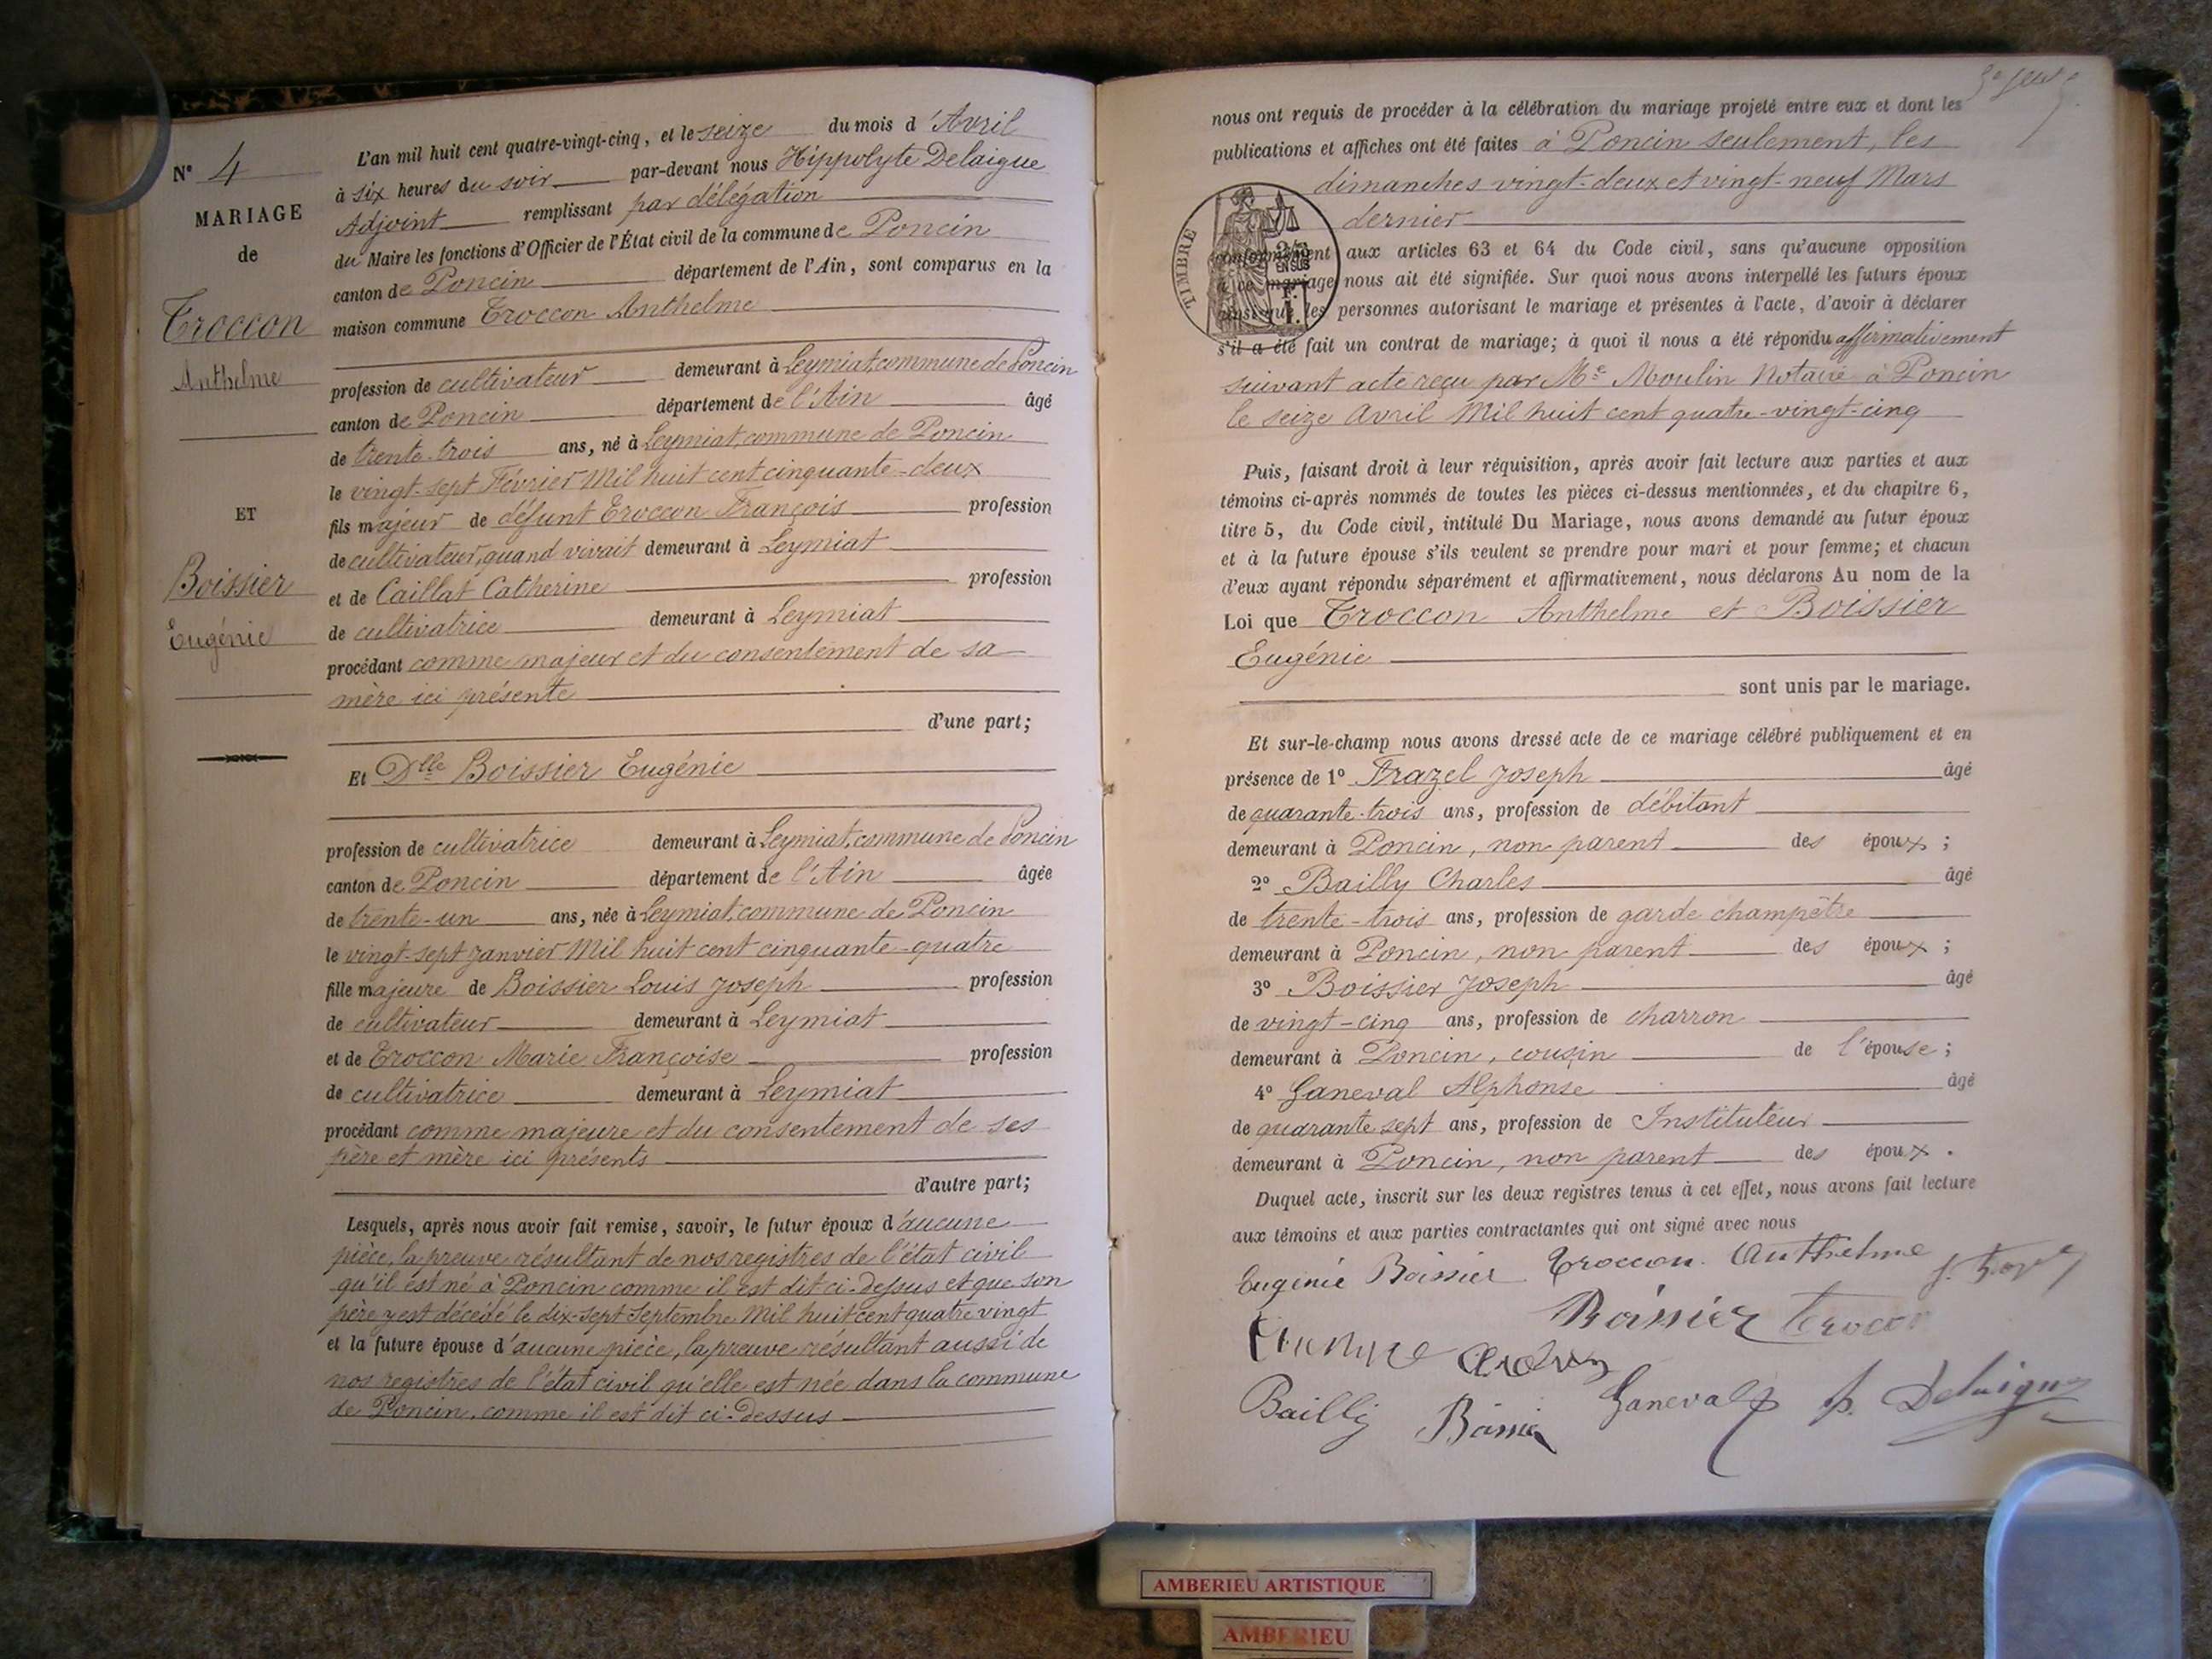 N° 4
MARIAGE
de
Troccon
Anthelme
ET
Boissier
Eugénie
L'an mil huit cent quatre-vingt-cinq, et le seize du mois d'Avril
à six heures du soir par-devant nous Hippolyte Delaigue
Adjoint remplissant par délégation
du Maire les fonctions d'Officier de l'État civil de la commune de Poncin
canton de Poncin département de l'Ain, sont comparus en la
maison commune Troccon Anthelme
profession de cultivateur demeurant à Leymiat, commune de Poncin
canton de Poncin département de l'Ain âgé
de trente-trois ans, né à Leymiat, commune de Poncin
le vingt-sept Février Mil huit cent cinquante-deux
fils majeur de défunt Troccon François profession
de cultivateur, quand vivait demeurant à Leymiat
et de Caillat Catherine profession
de cultivatrice demeurant à Leymiat
procédant comme majeur et du consentement de sa
mère ici présente
d'une part;
Et Dlle Boissier Eugénie
profession de cultivatrice demeurant à Leymiat, commune de Poncin
canton de Poncin département de l'Ain âgée
de trente-un ans, née à Leymiat, commune de Poncin
le vingt-sept Janvier Mil huit cent cinquante-quatre
fille majeure de Boissier Louis Joseph profession
de cultivateur demeurant à Leymiat
et de Troccon Marie Françoise profession
de cultivatrice demeurant à Leymiat
procédant comme majeure et du consentement de ses
père et mère ici présents
d'autre part;
Lesquels, après nous avoir fait remise, savoir, le futur époux d'aucune
pièce, la preuve résultant de nos registres de l'état civil
qu'il est né à Poncin comme il est dit ci-dessus et que son
père y est décédé le dix-sept Septembre Mil huit cent quatre vingt
et la future épouse d'aucune pièce, la preuve résultant aussi de
nos registres de l'état civil qu'elle est née dans la commune
de Poncin, comme il est dit ci-dessus
nous ont requis de procéder à la célébration du mariage projeté entre eux et dont les
publications et affiches ont été faites à Poncin seulement, les
dimanches vingt-deux et vingt-neuf Mars
dernier
TIMBRE
conformément aux articles 63 et 64 du Code civil, sans qu'aucune opposition
à ce mariage nous ait été signifiée. Sur quoi nous avons interpellé les futurs époux
ainsi que les personnes autorisant le mariage et présentes à l'acte, d'avoir à déclarer
s'il a été fait un contrat de mariage; à quoi il nous a été répondu affirmativement
suivant acte reçu par Me Moulin Notaire à Poncin
le seize Avril Mil huit cent quatre-vingt-cinq
Puis, faisant droit à leur réquisition, après avoir fait lecture aux parties et aux
témoins ci-après nommés de toutes les pièces ci-dessus mentionnées, et du chapitre 6,
titre 5, du Code civil, intitulé Du Mariage, nous avons demandé au futur époux
et à la future épouse s'ils veulent se prendre pour mari et pour femme; et chacun
d'eux ayant répondu séparément et affirmativement, nous déclarons Au nom de la
Loi que Troccon Anthelme et Boissier
Eugénie
sont unis par le mariage.
Et sur-le-champ nous avons dressé acte de ce mariage célébré publiquement et en
présence de 1° Frazel Joseph âgé
de quarante-trois ans, profession de débitant
demeurant à Poncin, non parent des époux;
2° Bailly Charles âgé
de trente-trois ans, profession de garde champêtre
demeurant à Poncin, non parent des époux;
3° Boissier Joseph âgé
de vingt-cinq ans, profession de charron
demeurant à Poncin, cousin de l'épouse;
4° Ganeval Alphonse âgé
de quarante sept ans, profession de Instituteur
demeurant à Poncin, non parent des époux.
Duquel acte, inscrit sur les deux registres tenus à cet effet, nous avons fait lecture
aux témoins et aux parties contractantes qui ont signé avec nous
Eugénie Boissier Troccon Anthelme
Boissier Trocon
Bailly Boissier Ganeval h. Delaigue
AMBERIEU ARTISTIQUE
AMBERIEU